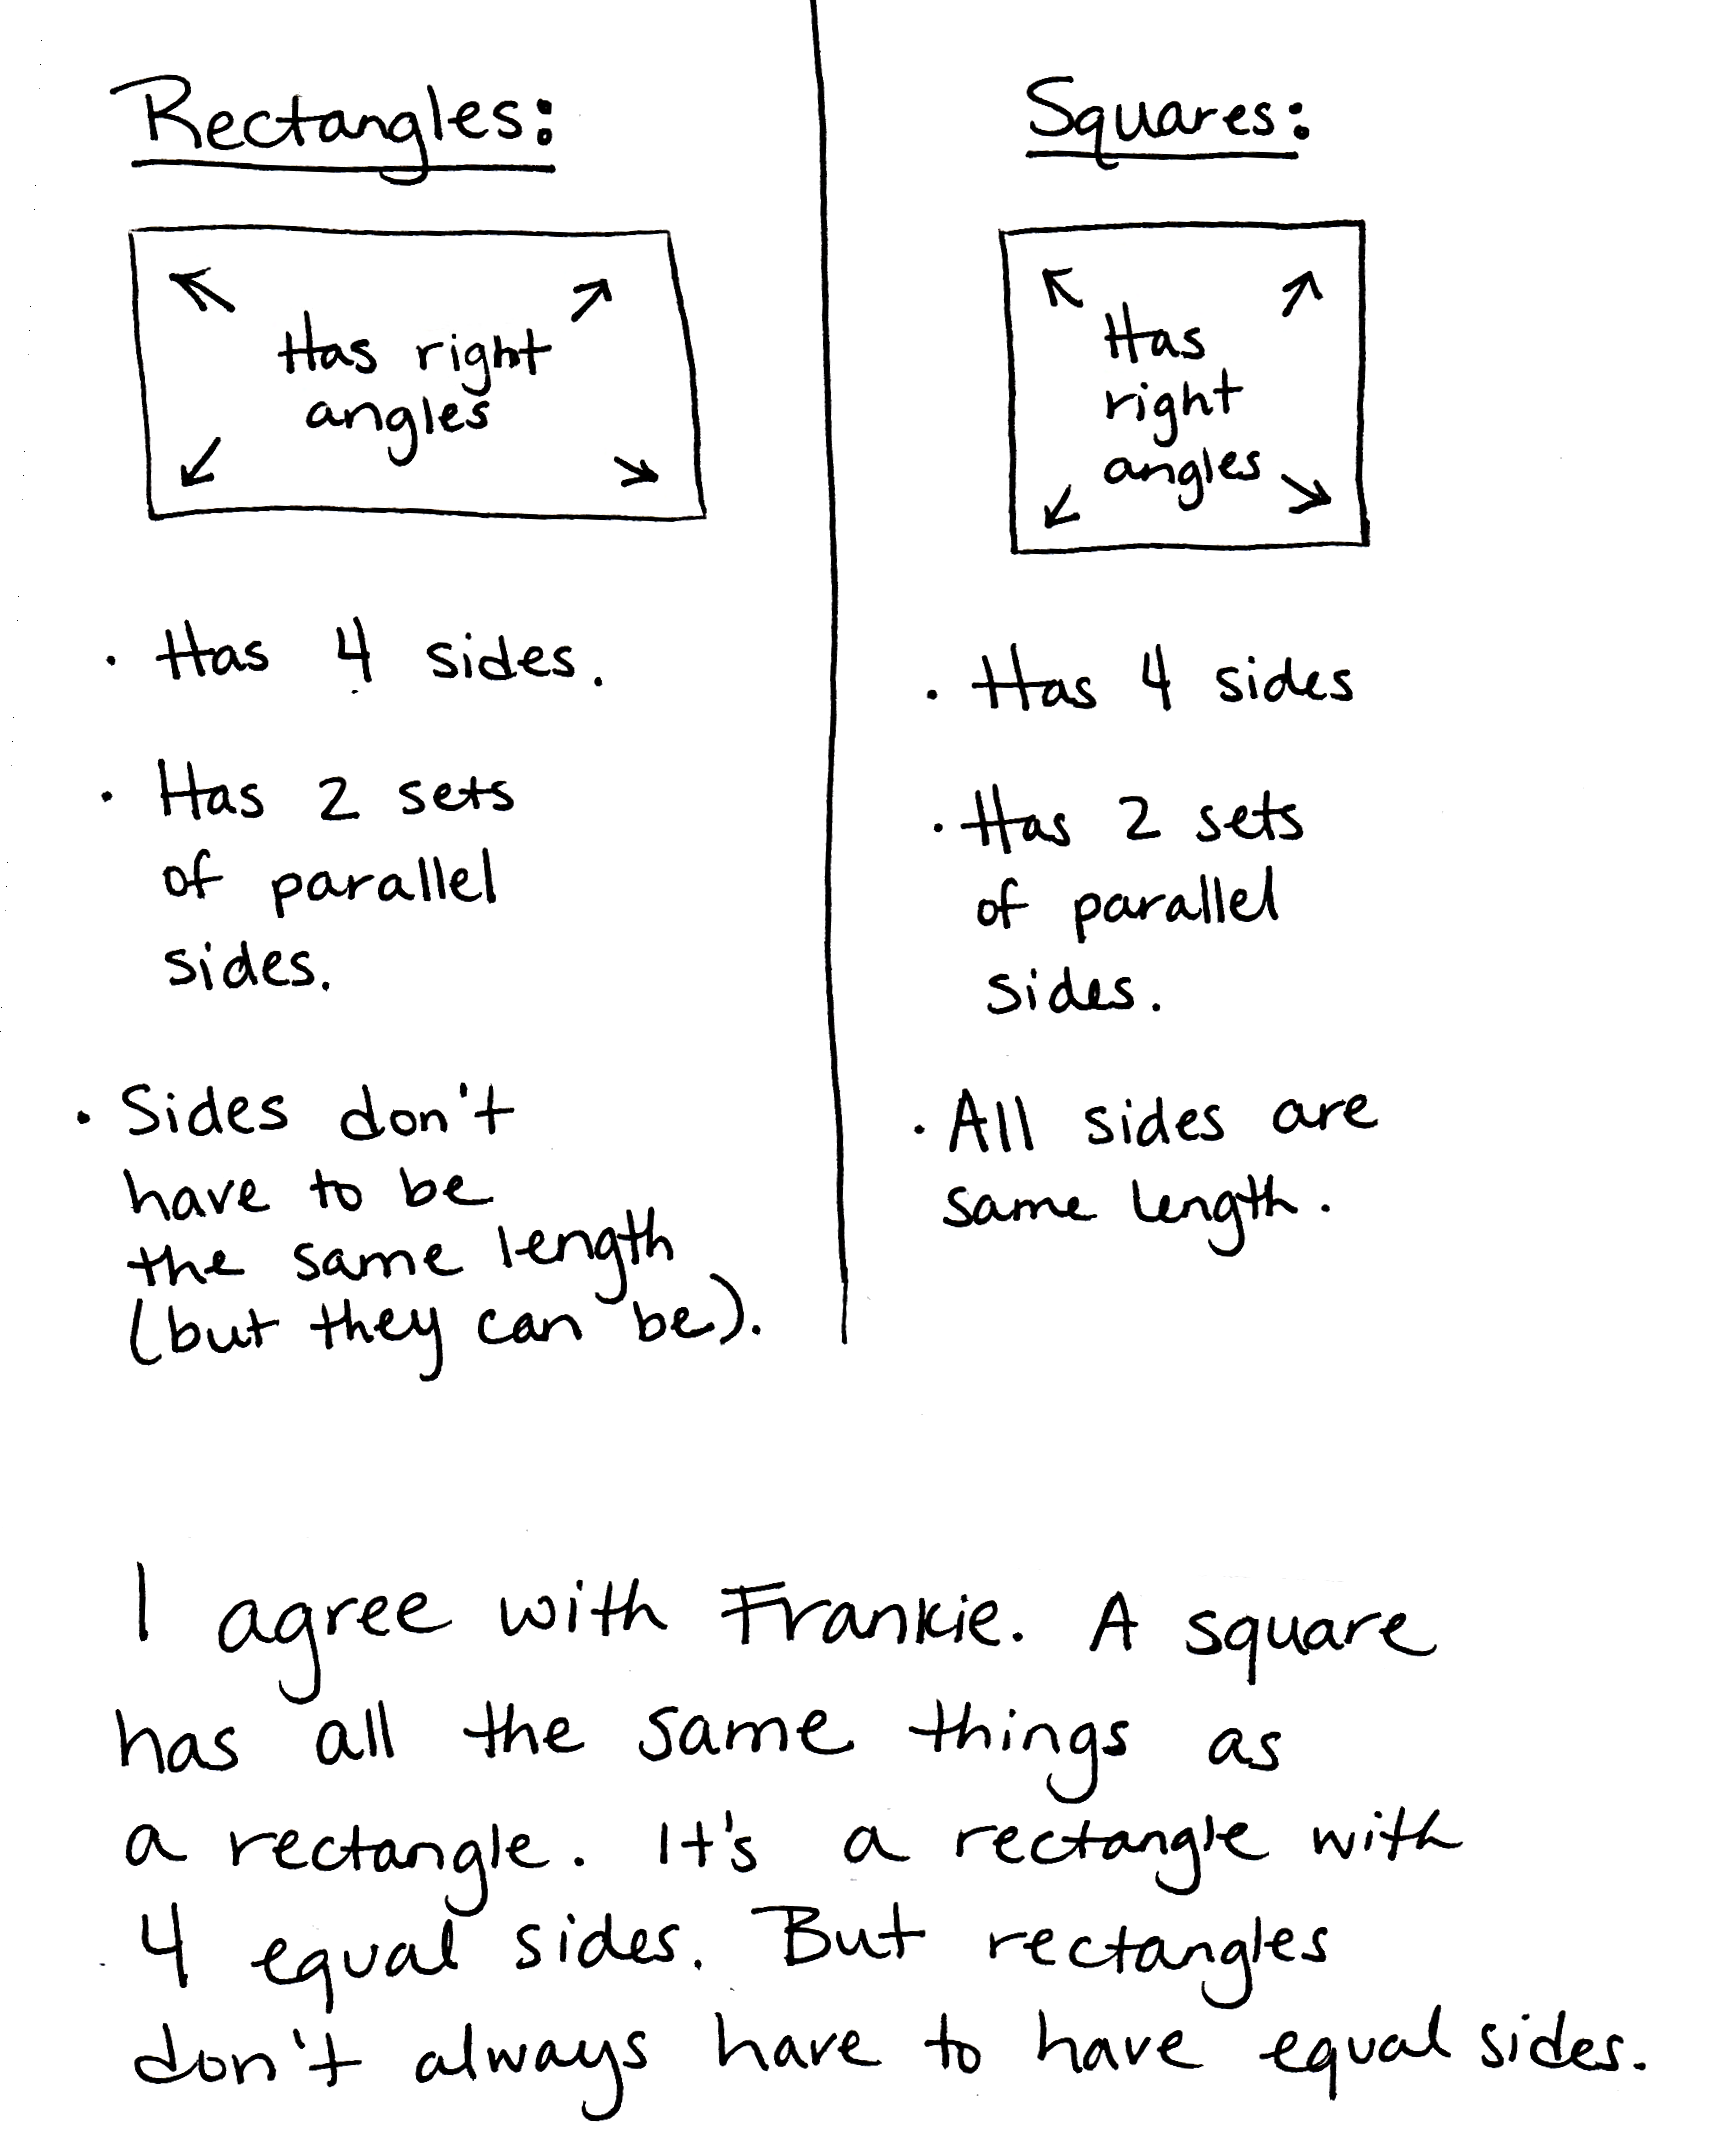 Rectangles:
Has right
angles
· Has 4 sides.
· Has 2 sets
of parallel
sides.
· Sides don't
have to be
the same length
(but they can be).
Squares:
Has
right
angles
· Has 4 sides
· Has 2 sets
of parallel
sides.
· All sides are
same length.
I agree with Frankie. A square
has all the same things as
a rectangle. It's a rectangle with
4 equal sides. But rectangles
don't always have to have equal sides.